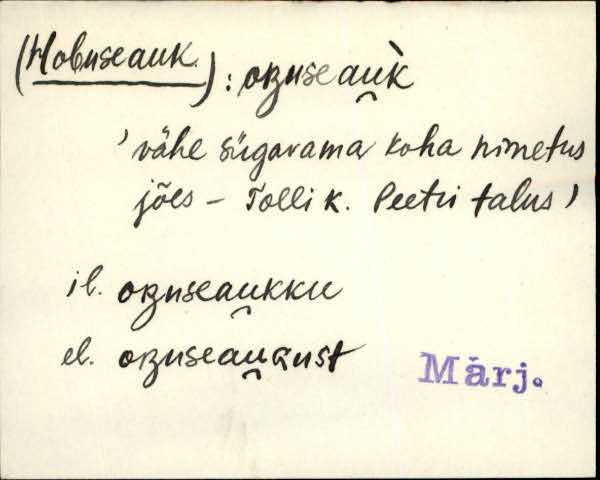 (Hobuseauk) : oʙuseau̯k̀
'vähe sügavama koha nimetus
jões – Tolli k. Peetri talus'
il. oʙuseau̯kku
el. oʙuseau̯ɢust
Märj.